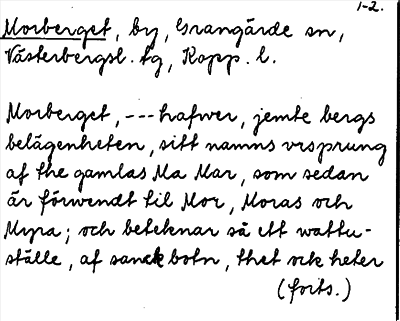 1-2.
Morberget, by, Grangärde sn,
Västerbergsl. tg, Kopp. l.
Morberget, --- hafwer, jemte bergs
belägenheten, sitt namns vrsprung
af the gamlas Ma Mar, som sedan
är förwendt til Mor, Moras och
Myra; och beteknar så ett wattu-
ställe, af sanck botn, thet ock heter
(forts.)